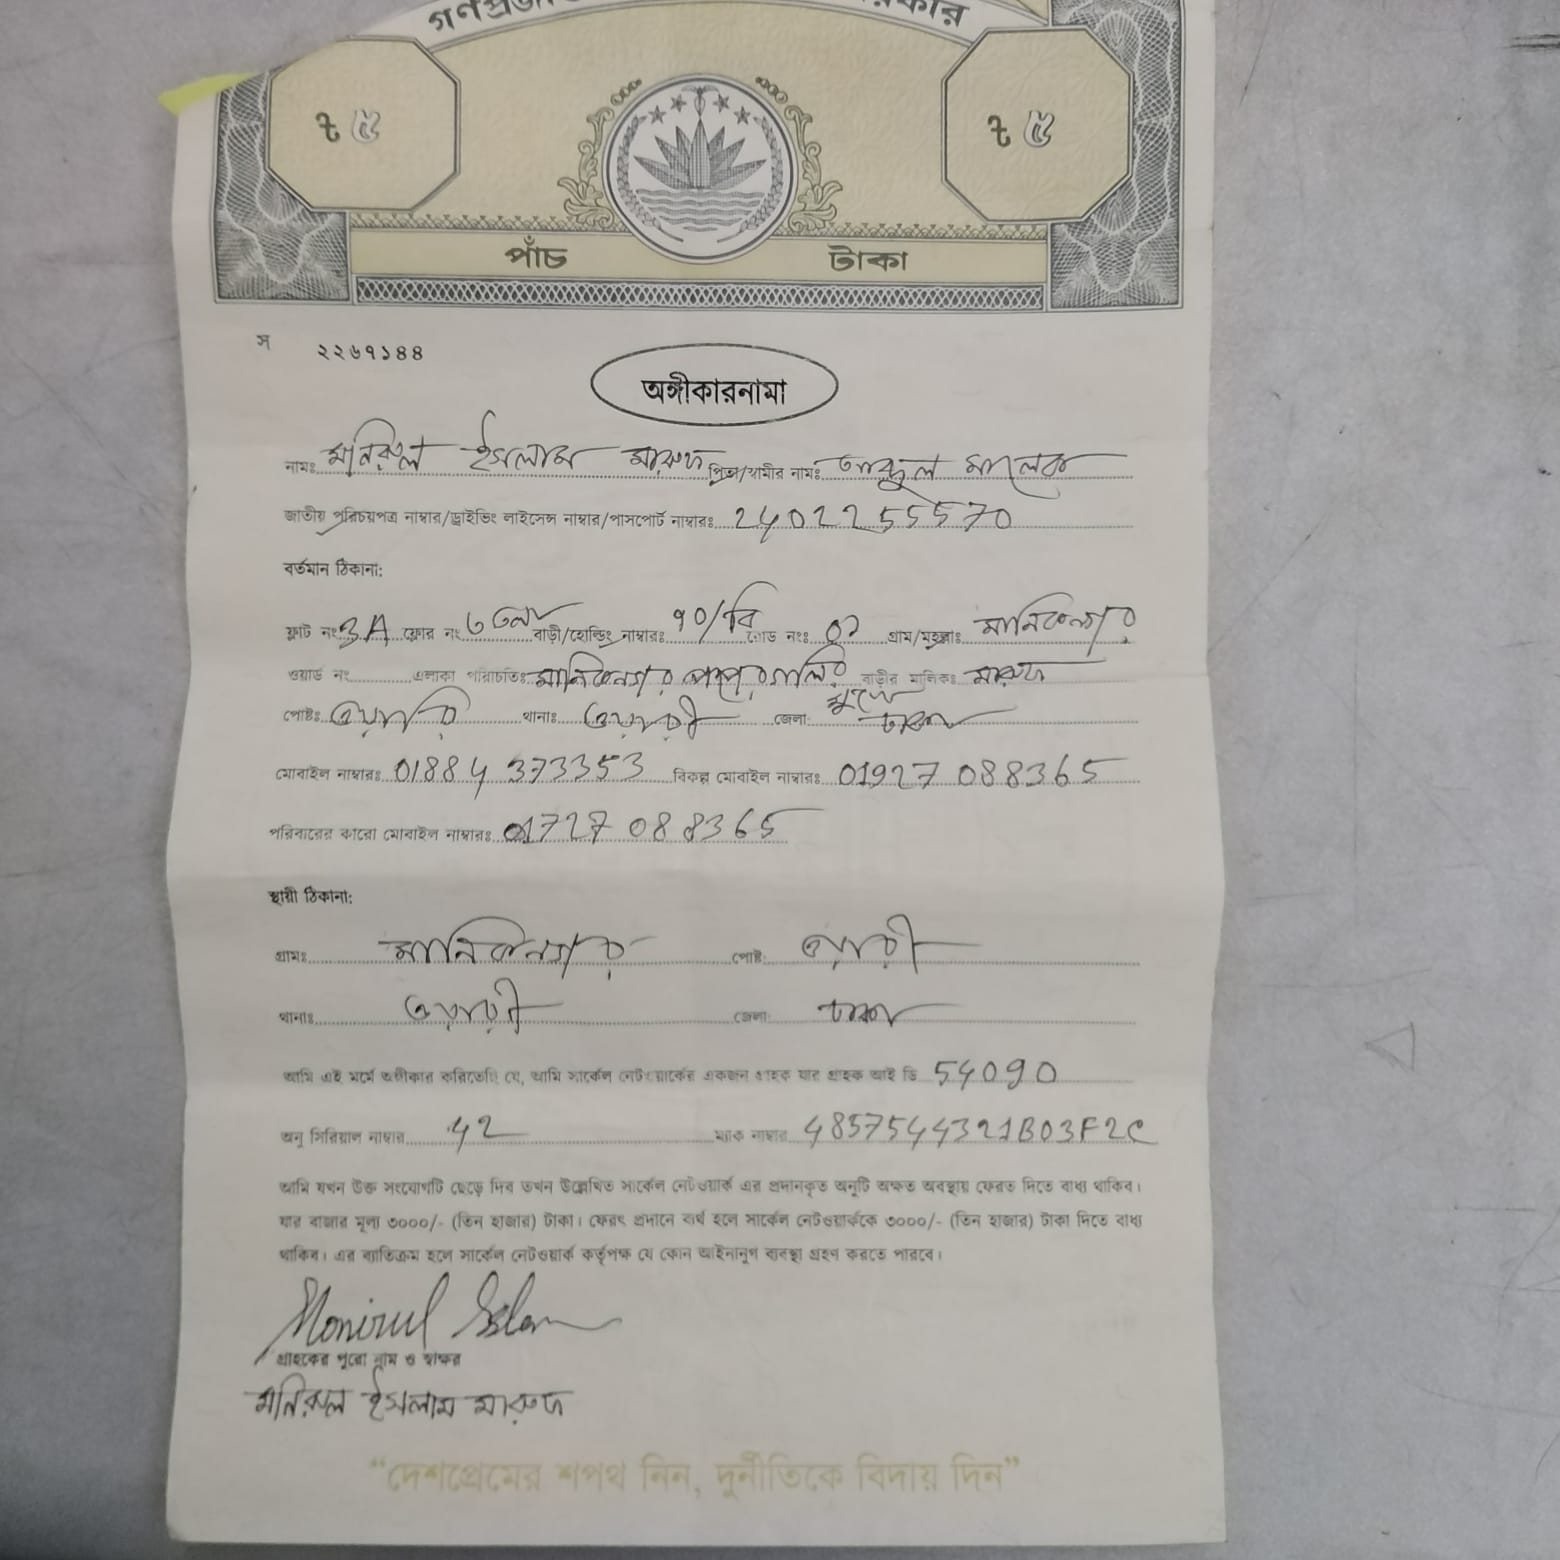 ৳ ৫ ৳ ৫
পাঁচ টাকা
স ২২৬৭১৪৪
অঙ্গীকারনামা
নামঃ মনিরুল ইসলাম মারুফ পিতা/স্বামীর নামঃ আব্দুল মালেক
জাতীয় পরিচয়পত্র নাম্বার/ড্রাইভিং লাইসেন্স নাম্বার/পাসপোর্ট নাম্বারঃ 2402255570
বর্তমান ঠিকানা:
ফ্লাট নং 3A ফ্লোর নং ৬ তলা বাড়ী/হোল্ডিং নাম্বারঃ ৭০/বি রোড নং 02 গ্রাম/মহল্লাঃ মানিকনগর
ওয়ার্ড নং এলাকা পরিচিতিঃ মানিকনগর বাড়ীর মালিকঃ মারুফ
পোষ্টঃ ওয়ারি থানাঃ ওয়ারী জেলা: ঢাকা
মোবাইল নাম্বারঃ 01884 373353 বিকল্প মোবাইল নাম্বারঃ 01927 088365
পরিবারের কারো মোবাইল নাম্বারঃ 01727 088365
স্থায়ী ঠিকানা:
গ্রামঃ মানিকনগর পোষ্ট: ওয়ারী
থানাঃ ওয়ারী জেলা: ঢাকা
আমি এই মর্মে অঙ্গীকার করিতেছি যে, আমি সার্কেল নেটওয়ার্কের একজন গ্রাহক যার গ্রাহক আই ডি 54090
অনু সিরিয়াল নাম্বার 42 ম্যাক নাম্বার 4857544321B03F2C
আমি যখন উক্ত সংযোগটি ছেড়ে দিব তখন উল্লেখিত সার্কেল নেটওয়ার্ক এর প্রদানকৃত অনুটি অক্ষত অবস্থায় ফেরত দিতে বাধ্য থাকিব।
যার বাজার মূল্য ৩০০০/- (তিন হাজার) টাকা। ফেরৎ প্রদানে ব্যর্থ হলে সার্কেল নেটওয়ার্ককে ৩০০০/- (তিন হাজার) টাকা দিতে বাধ্য
থাকিব। এর ব্যতিক্রম হলে সার্কেল নেটওয়ার্ক কর্তৃপক্ষ যে কোন আইনানুগ ব্যবস্থা গ্রহণ করতে পারবে।
Monirul Islam
গ্রাহকের পুরো নাম ও স্বাক্ষর
মনিরুল ইসলাম মারুফ
“দেশপ্রেমের শপথ নিন, দুর্নীতিকে বিদায় দিন”